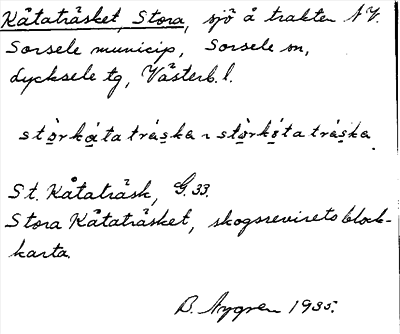 Kåtaträsket, Stora, sjö å trakten NV.
Sorsele municip, Sorsele sn,
Lycksele tg, Västerb. l.
stòrkå̀tatráska ~ stòrkǻtatráska.
St. Kåtaträsk, G. 33.
Stora Kåtaträsket, skogsrevirets block-
karta.
B. Nygren 1935.